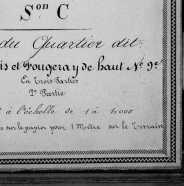 Son C
du Quartier dit
is et Fougeray de haut No 9e
En Trois Parties
2e Partie
à l'échelle de 1 à 1000
sur le papier pour 1 Mètre sur le Terrain